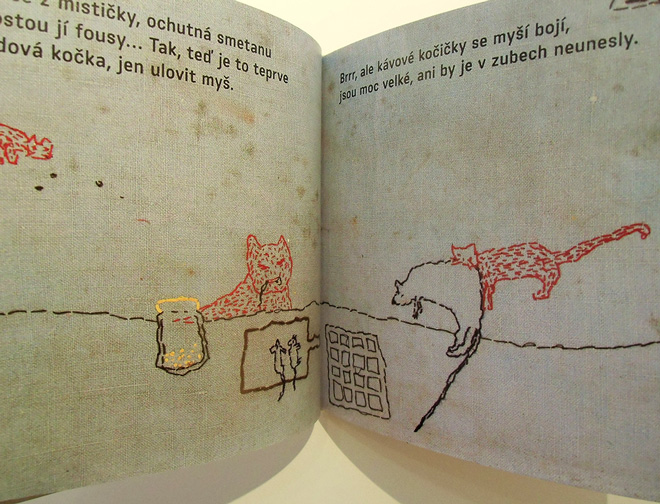 z mističky, ochutná smetanu
ostou jí fousy... Tak, teď je to teprve
dová kočka, jen ulovit myš.
Brrr, ale kávové kočičky se myší bojí,
jsou moc velké, ani by je v zubech neunesly.